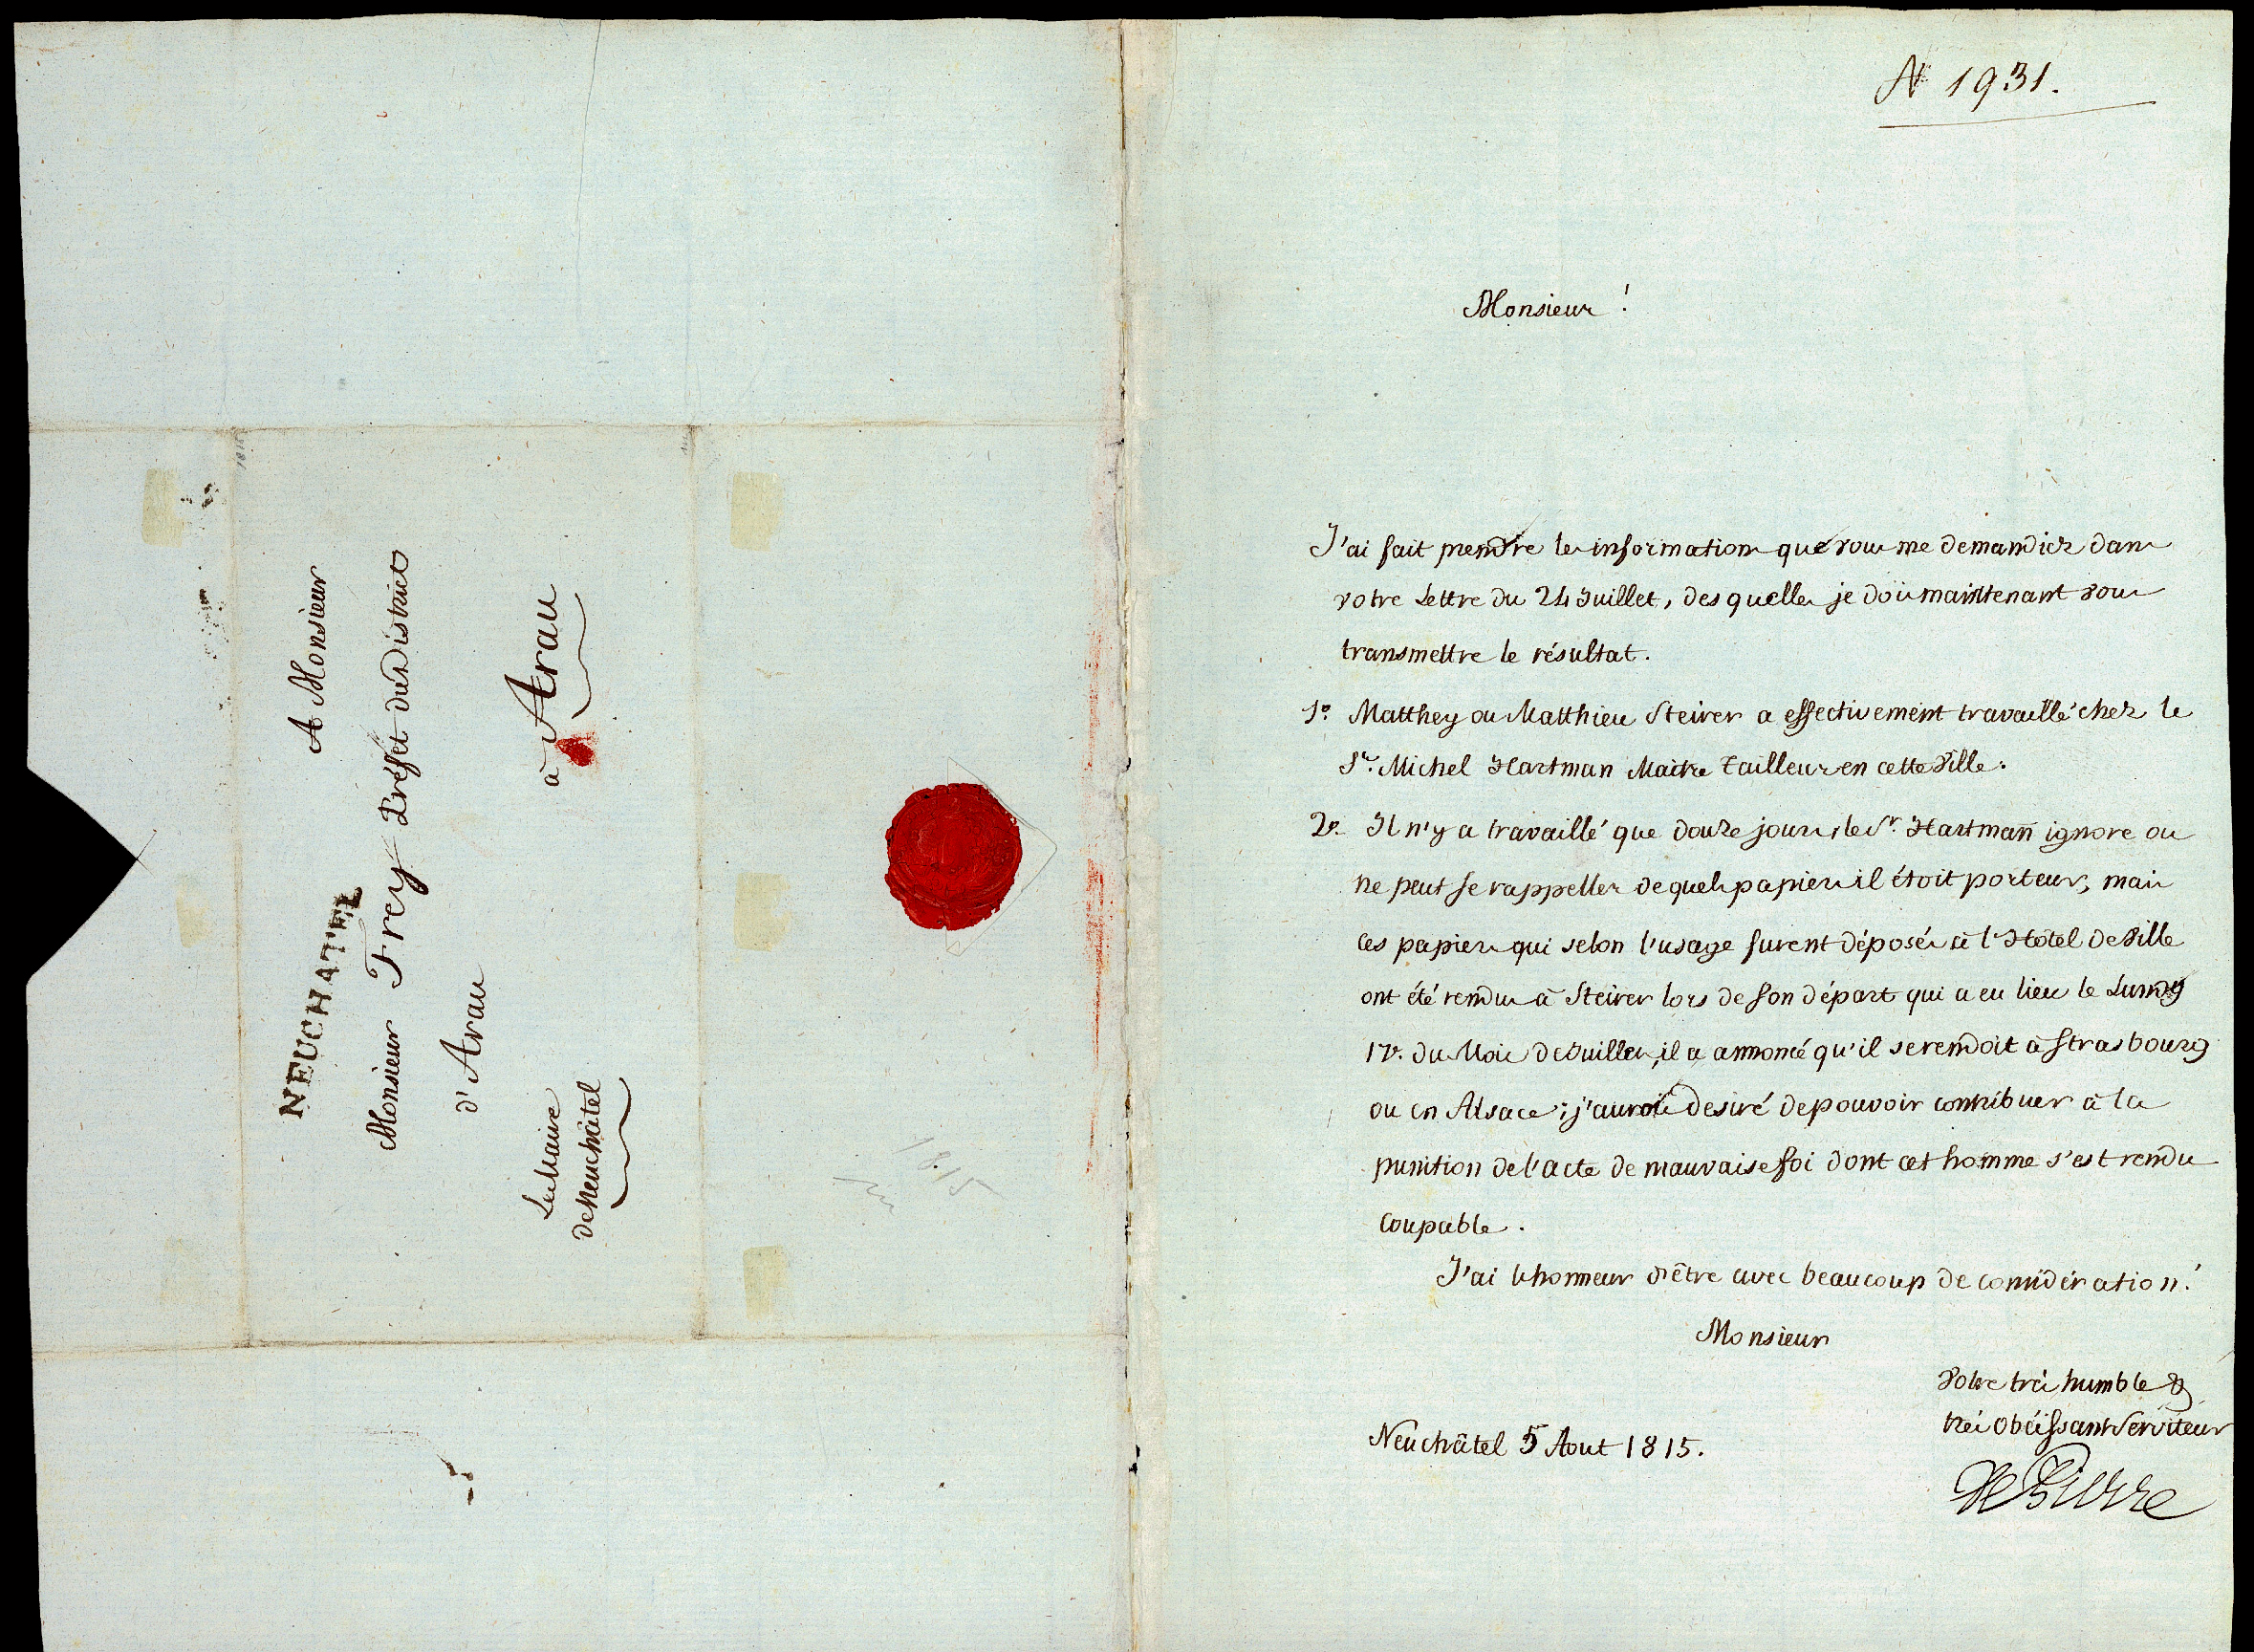 A Monsieur
NEUCHATEL
Monsieur Frey Préfet du District
d'Arau
à Arau
Le Maire
de Neuchâtel
1815
N 1931.
Monsieur !
J'ai fait prendre les informations que vous me demandiez dans
votre Lettre du 24 Juillet, des quelles je dois maintenant vous
transmettre le résultat.
1º Matthey ou Matthieu Steirer a effectivement travaillé chez le
Sr. Michel Hartman Maitre Tailleur en cette Ville.
2º. Il n'y a travaillé que douze jours, le Sr. Hartmañ ignore ou
ne peut se rappeller de quels papiers il étoit porteur, mais
ces papiers qui selon l'usage furent déposés à l'Hôtel de Ville
ont été rendus à Steirer lors de son départ qui a eu lieu le Lundy
17e. du Mois de Juillet, il a annoncé qu'il se rendoit à Strasbourg
ou en Alsace; j'aurois desiré de pouvoir contribuer à la
punition de l'acte de mauvaise foi dont cet homme s'est rendu
Coupable.
J'ai l'honneur d'être avec beaucoup de considération!
Monsieur
Votre très humble &
très Obéissant Serviteur
Neûchâtel 5 Aout 1815.
DePierre